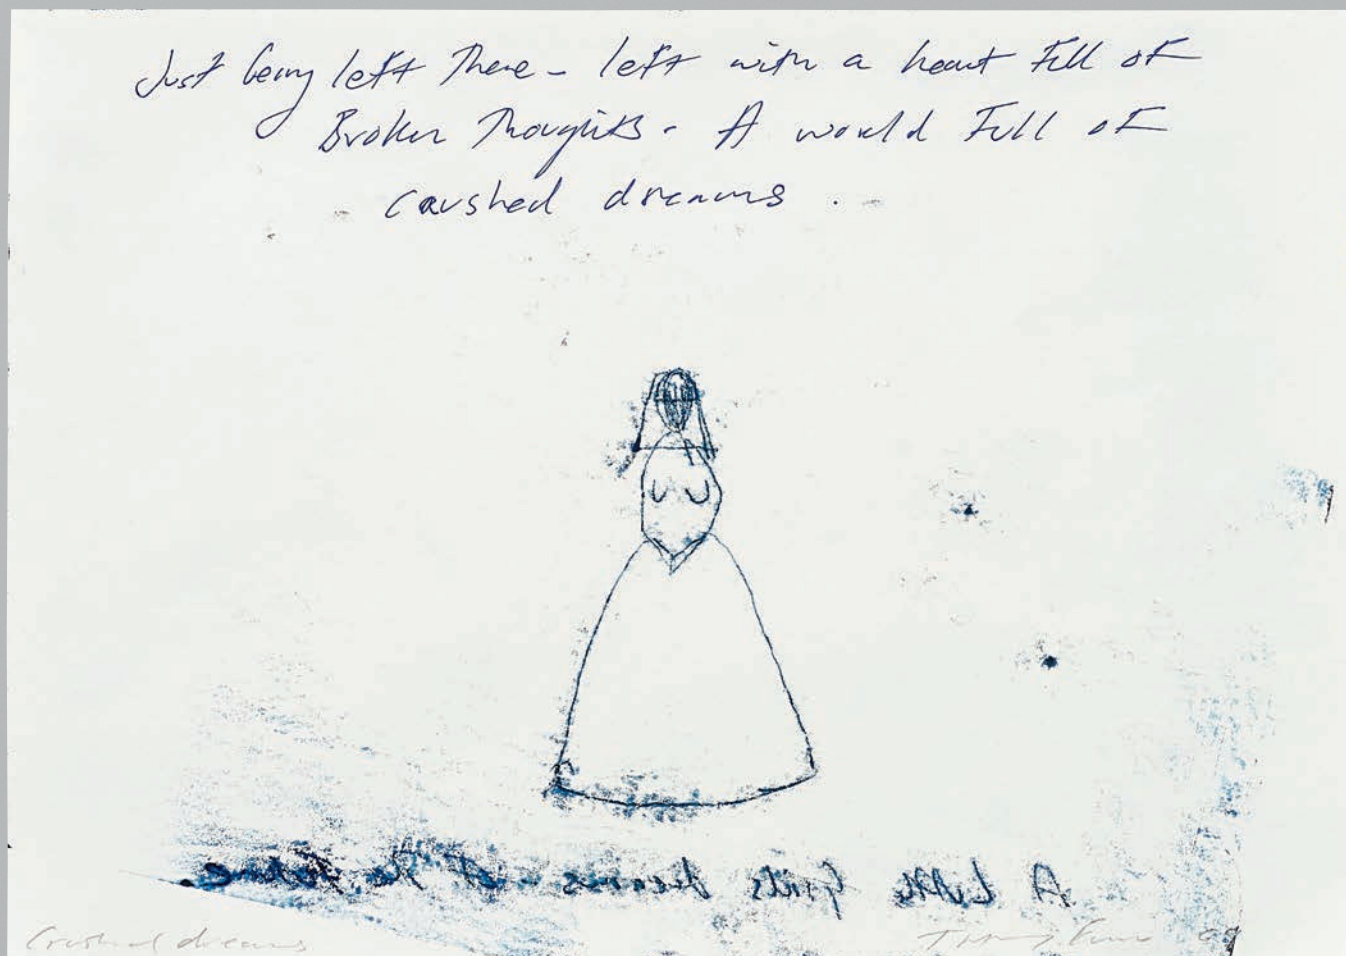 Just being left There - left with a heart Full of
Broken Thoughts - A world Full of
crushed dreams .
A Little Girls dreams of The Future.
Crushed dreams
Tracey Emin 09